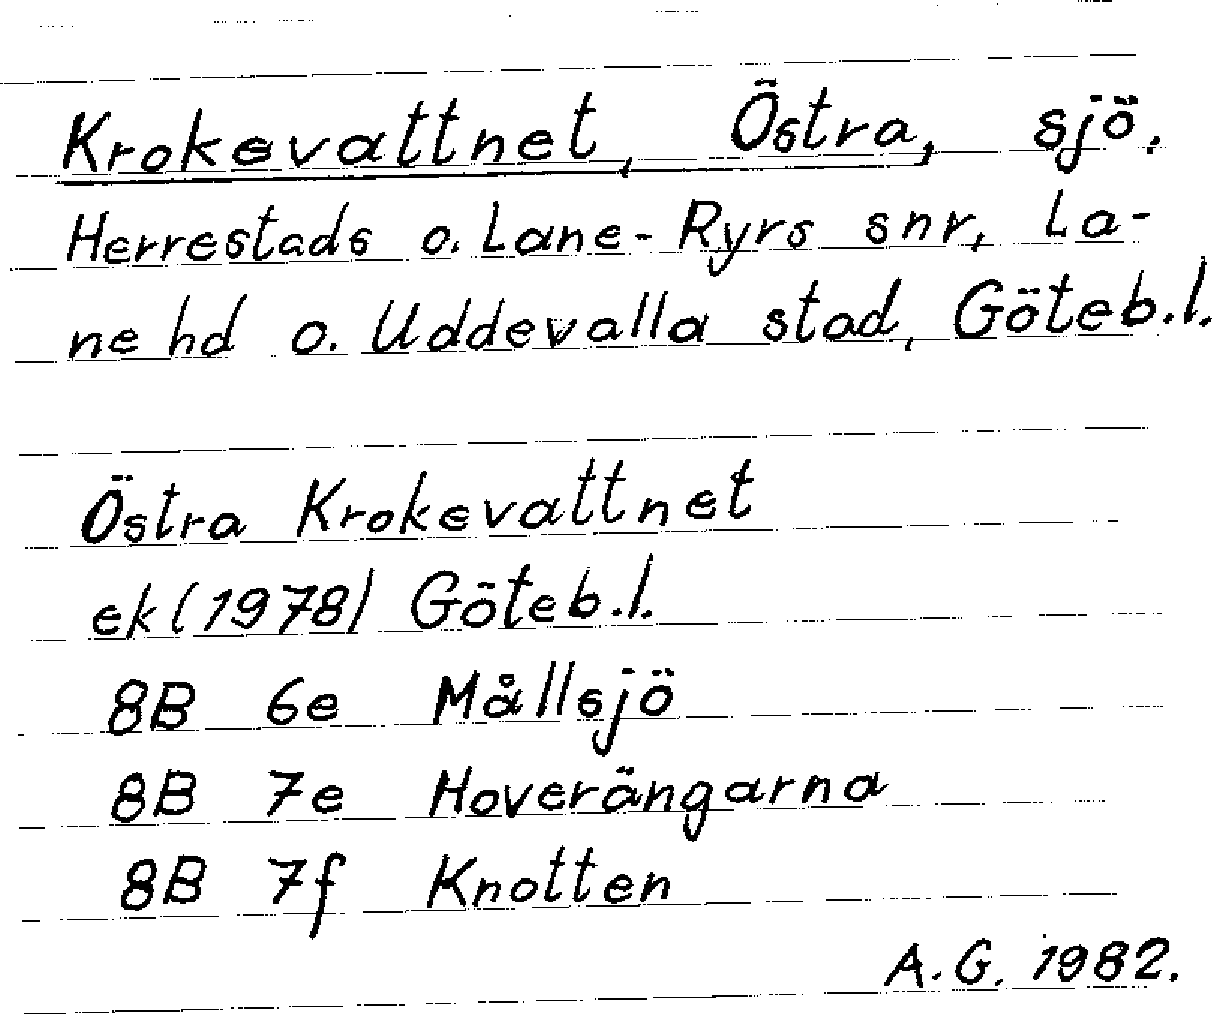 Krokevattnet, Östra, sjö.
Herrestads o. Lane-Ryrs snr, La-
ne hd o. Uddevalla stad, Göteb.l.
Östra Krokevattnet
ek (1978) Göteb.l.
8B 6e Mållsjö
8B 7e Hoverängarna
8B 7f Knotten
A.G. 1982.